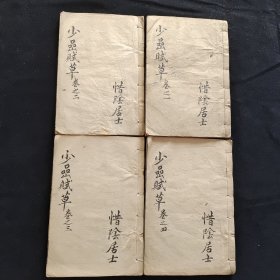 少嵒賦草 卷之二
惜陰居士
少嵒賦草 卷之一
惜陰居士
少嵒賦草 卷之三
惜陰居士
少嵒賦草 卷之四
惜陰居士